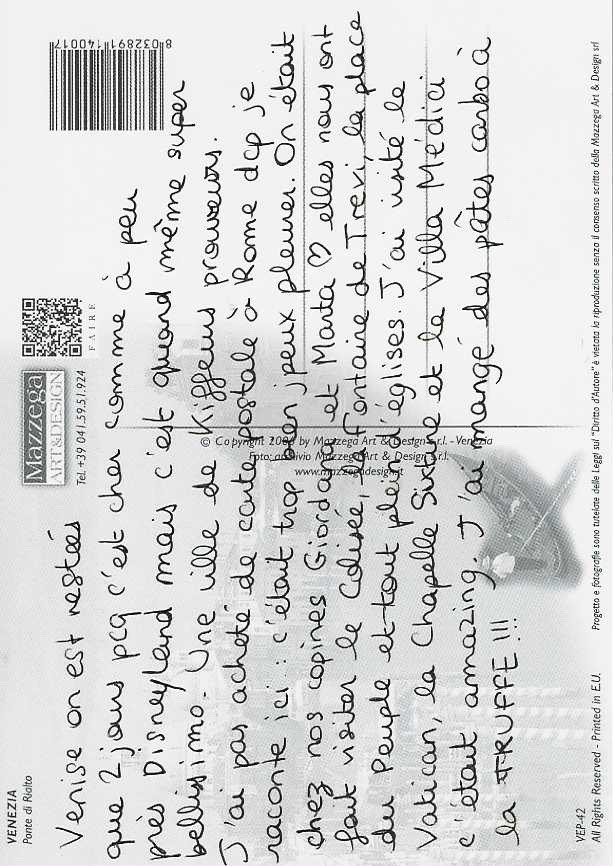 VENEZIA
Ponte di Rialto
Venise on est restées
que 2 jours pcq c'est cher comme à peu
près Disneyland mais c'est quand même super
bellissimo. Une ville de kiffeurs prouveurs.
J'ai pas acheté de carte postale à Rome dcp je
raconte ici : c'était trop bien j'peux pleurer. On était
chez nos copines Giordana et Marta ♡ elles nous ont
fait visiter le Colisée, la Fontaine de Trevi, la place
du Peuple et tout plein d'églises. J'ai visité le
Vatican, la Chapelle Sixtine et la Villa Médici
c'était amazing. J'ai mangé des pâtes carbo à
la TRUFFE !!!
Mazzega
ART&DESIGN
Tel. +39 041.59.51.924
FAIRE
8 032891 140017
© Copyright 2006 by Mazzega Art & Design s.r.l. - Venezia
Foto: archivio Mazzega Art & Design s.r.l.
www.mazzegadesign.it
VEP-42
All Rights Reserved - Printed in E.U.
Progetto e fotografie sono tutelate delle Leggi sul "Diritto d'Autore" è vietata la riproduzione senza il consenso scritto della Mazzega Art & Design srl